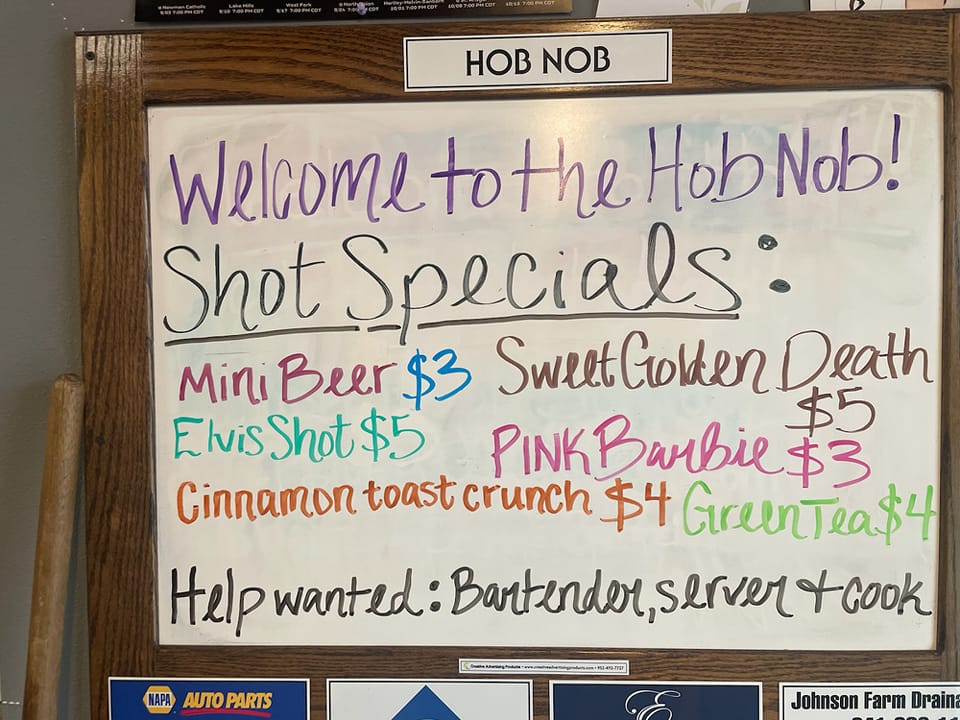 @ Newman Catholic
9/03 7:00 PM CDT
Lake Mills
9/10 7:00 PM CDT
West Fork
9/17 7:00 PM CDT
9/24 7:00 PM CDT
Hartley-Melvin-Sanborn
10/01 7:00 PM CDT
10/08 7:00 PM CDT
10/15 7:00 PM CDT
HOB NOB
Welcome to the Hob Nob!
Shot Specials:
Mini Beer $3
Sweet Golden Death
$5
Elvis Shot $5
PINK Barbie $3
Cinnamon toast crunch $4
Green Tea $4
Help wanted: Bartender, server + cook
Creative Advertising Products • www.creativeadvertisingproducts.com • 952-492-7727
NAPA AUTO PARTS
E
Johnson Farm Draina